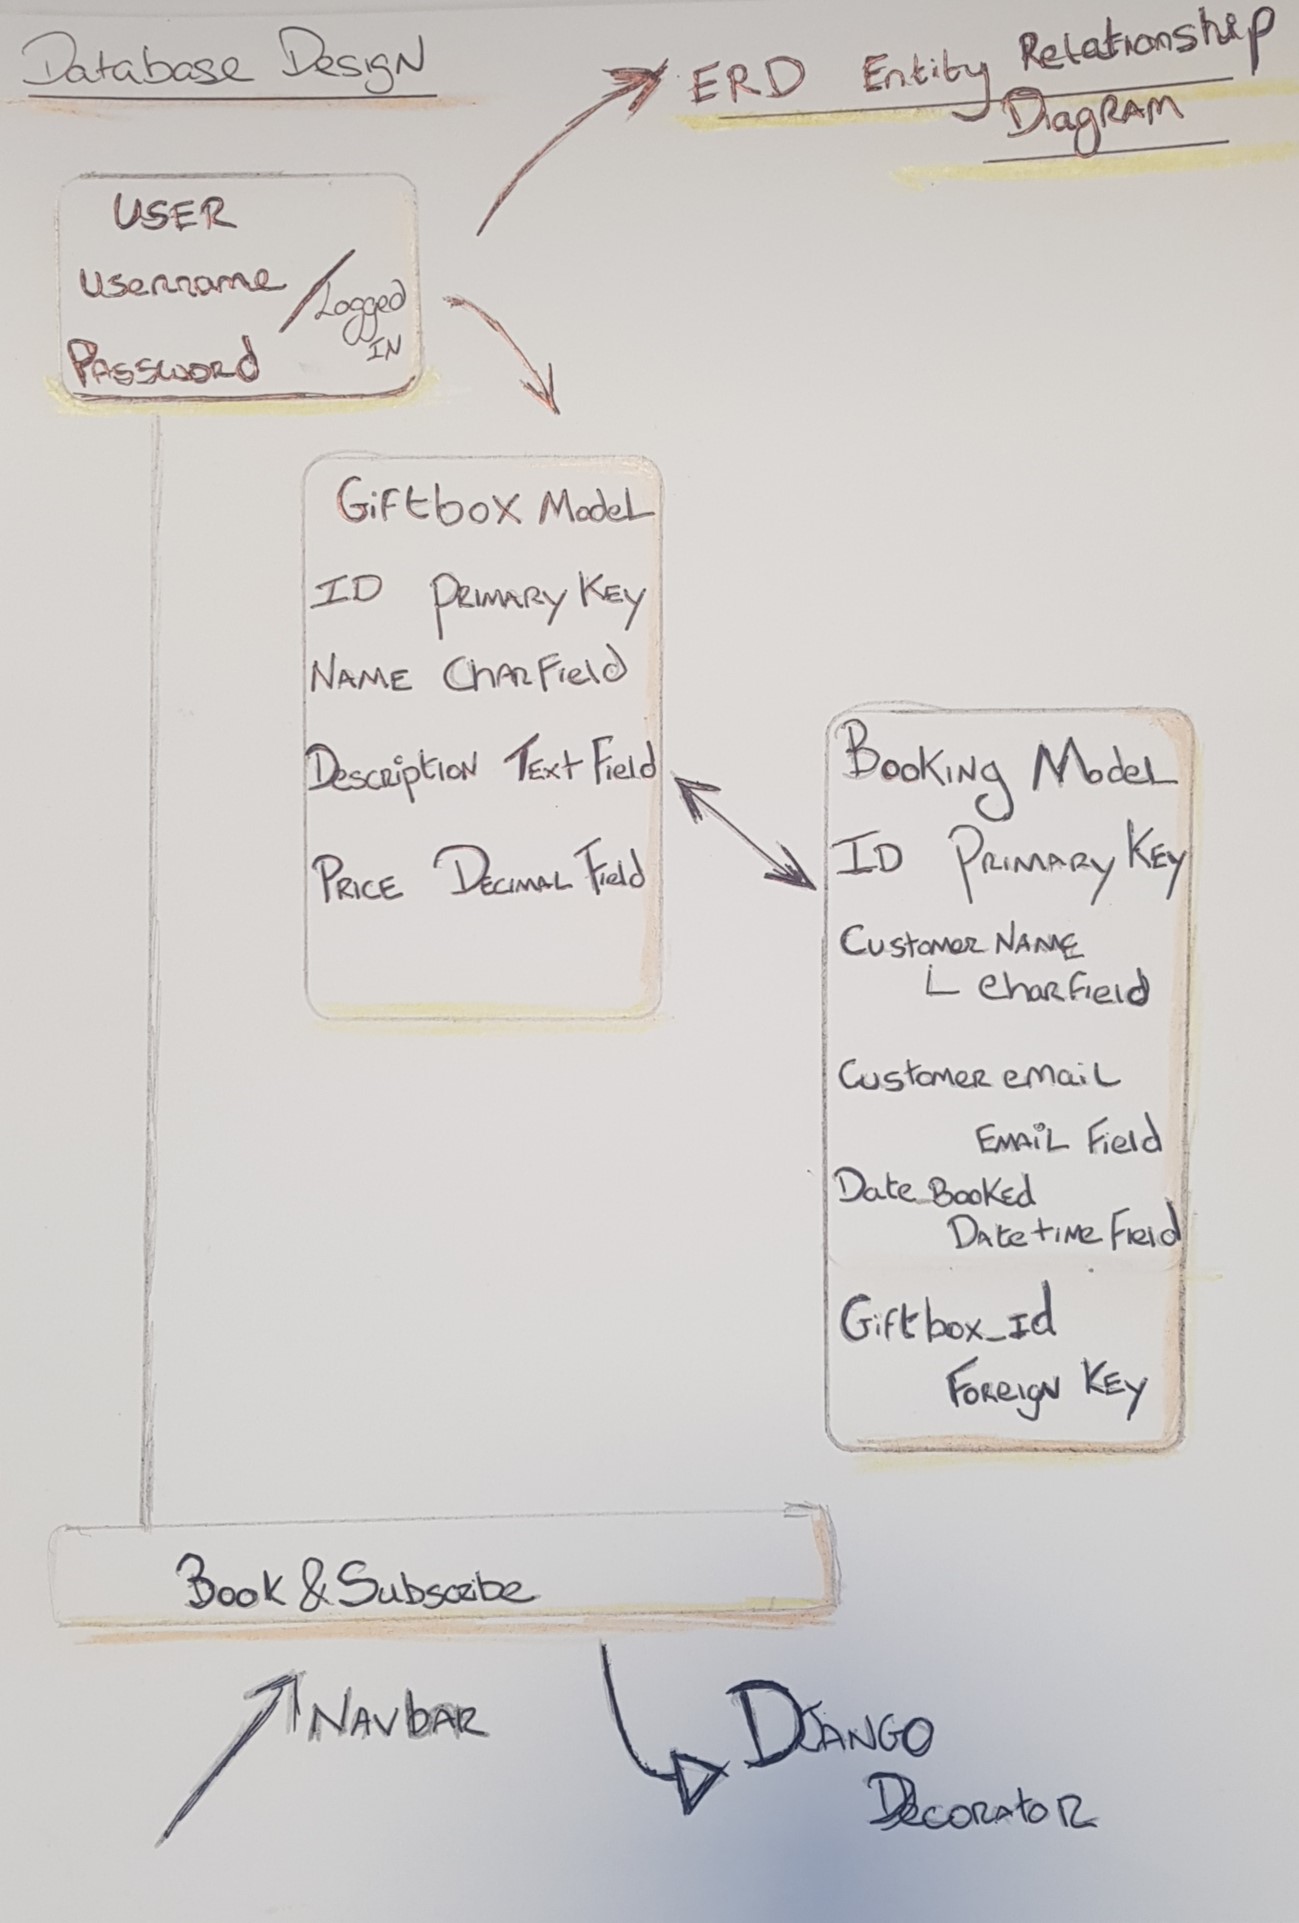 Database Design
ERD Entity Relationship
Diagram
USER
Username / Logged
IN
Password
Giftbox Model
ID Primary Key
Name CharField
Description Text Field
Price Decimal Field
Booking Model
ID Primary Key
Customer Name
L CharField
Customer email
Email Field
Date_Booked
Datetime Field
Giftbox_Id
Foreign Key
Book & Subscribe
Navbar
Django
Decorator